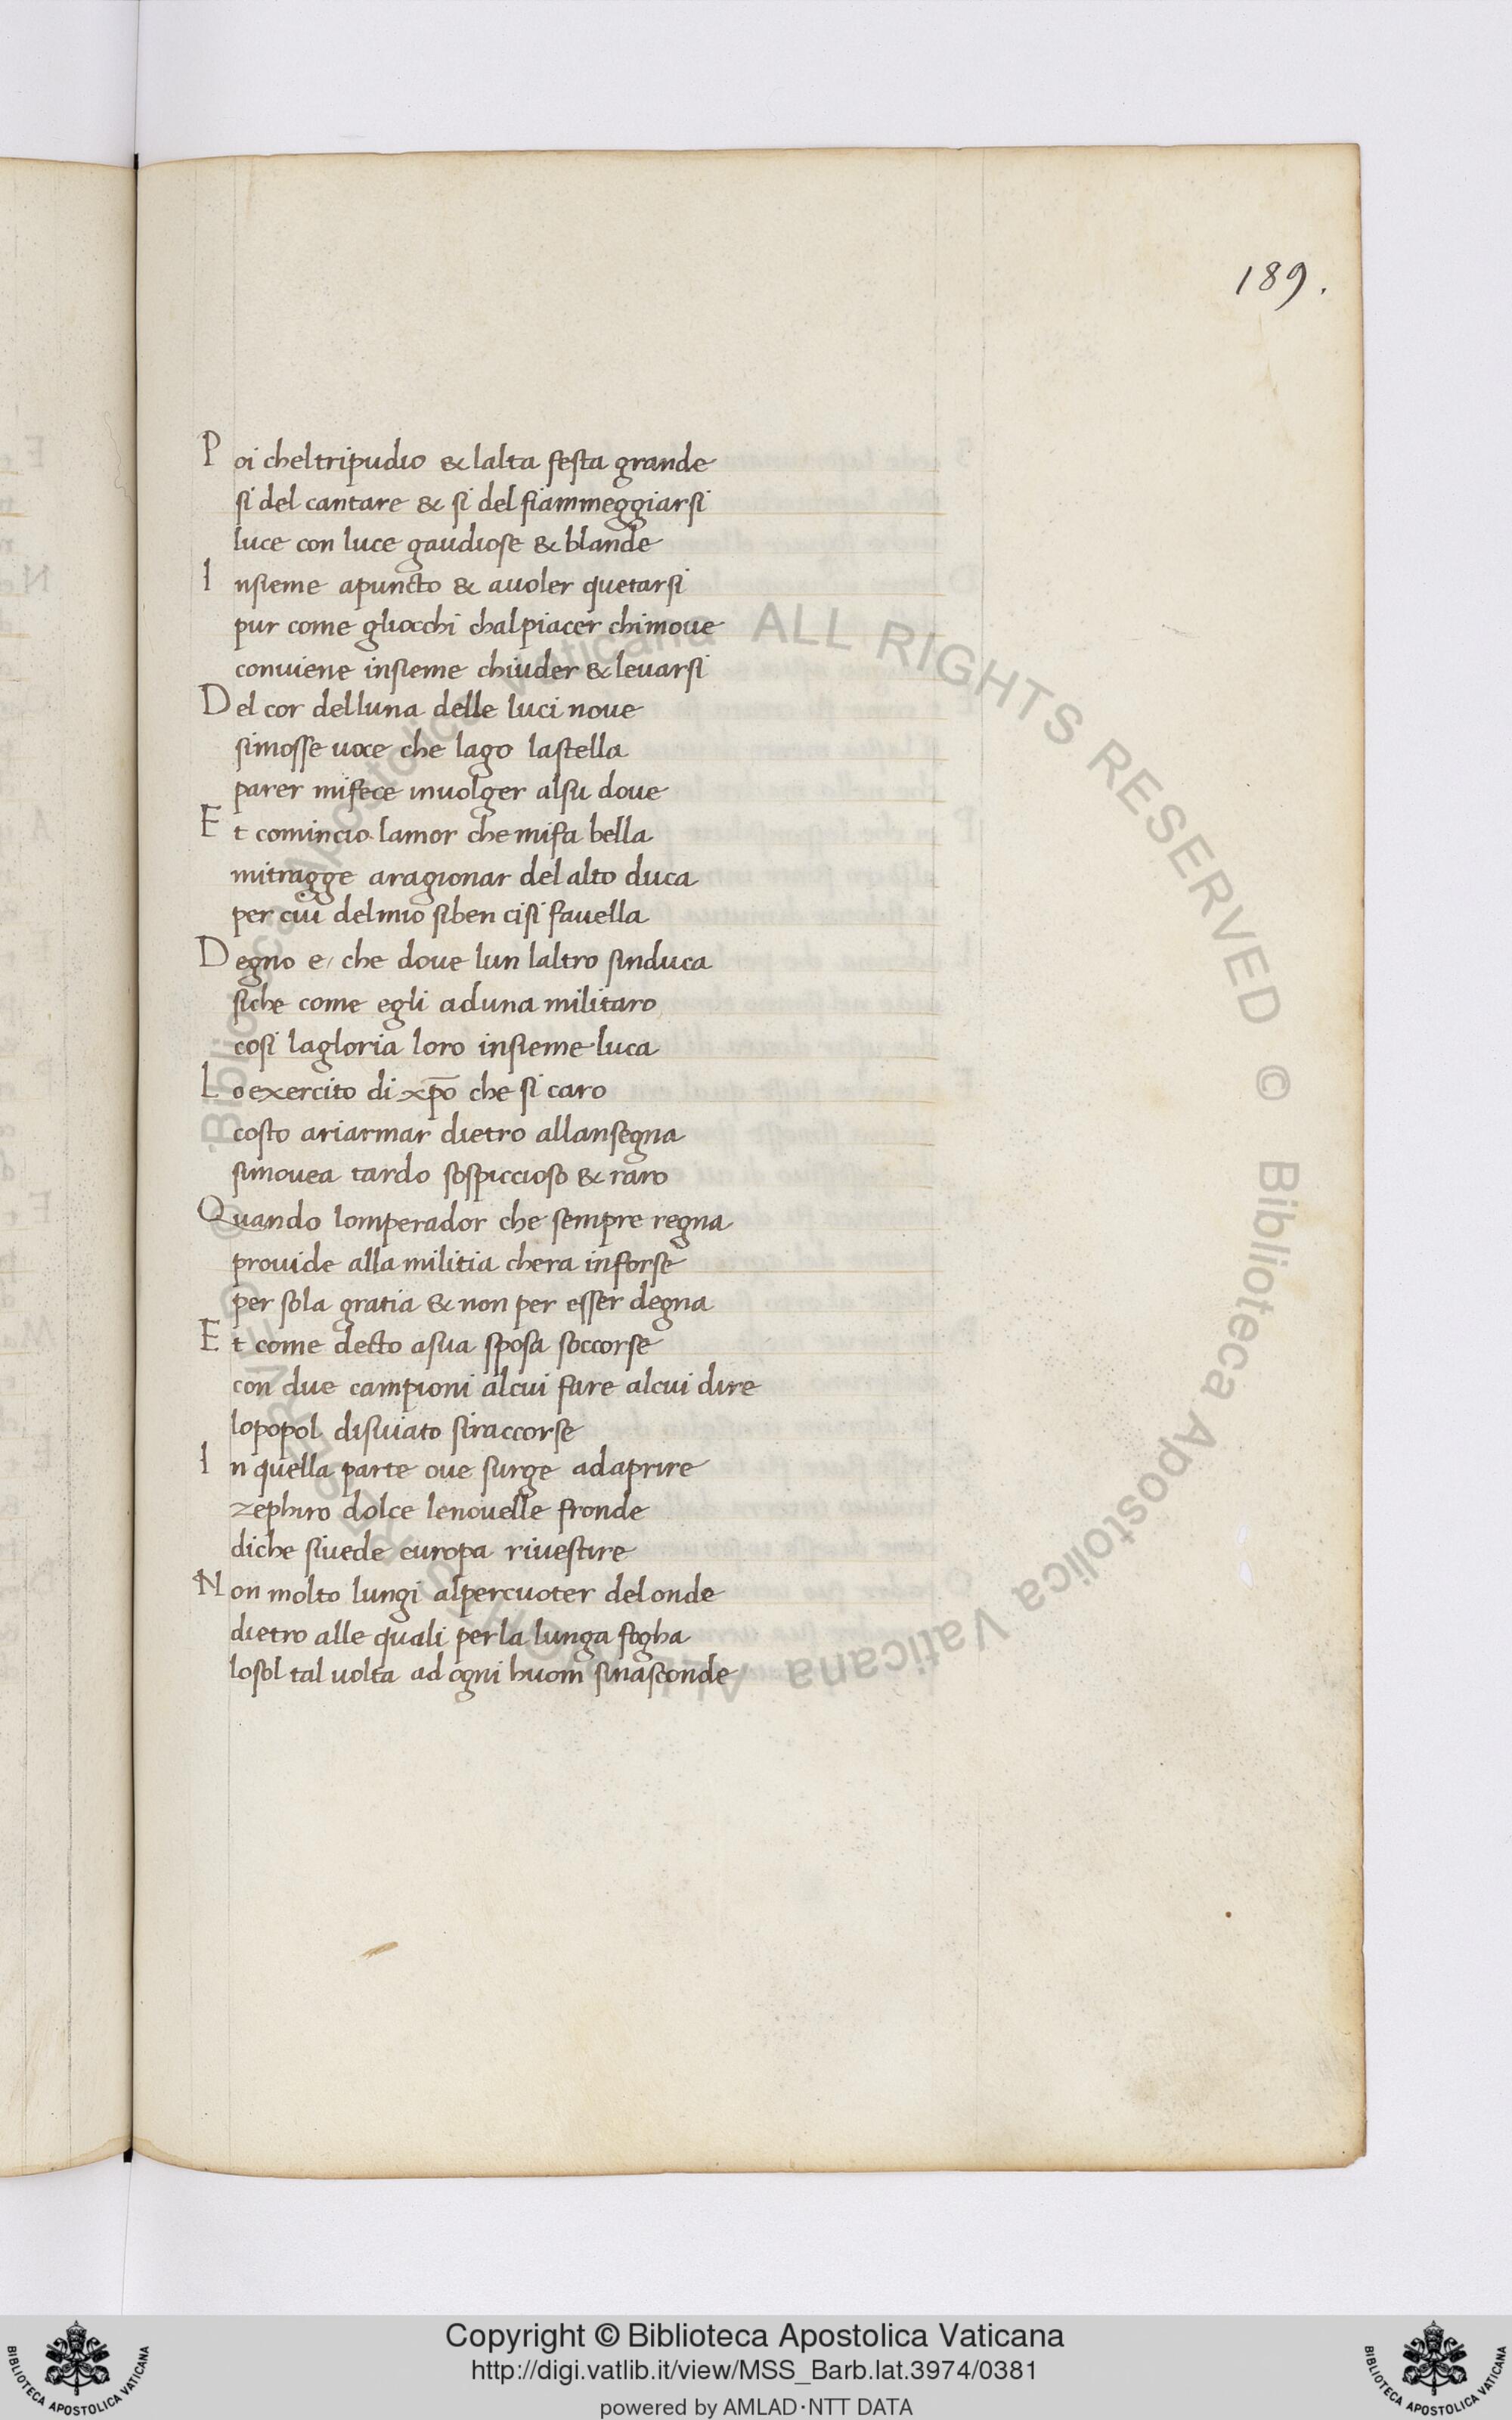 189.
Poi cheltripudio & lalta festa grande
si del cantare & si del fiammeggiarsi
luce con luce gaudiose & blande
Insieme apuncto & avoler quetarsi
pur come gliocchi chalpiacer chimove
conviene insieme chiuder & levarsi
Del cor delluna delle luci nove
simosse voce che lago lastella
parer mifece involger alsu dove
Et comincio lamor che mifa bella
mitragge aragionar del alto duca
per cui delmio siben cisi favella
Degno e, che dove lun laltro sinduca
siche come egli aduna militaro
cosi lagloria loro insieme luca
Lo exercito di xp̄o che si caro
costo ariarmar dietro allansegna
simovea tardo sospiccioso & raro
Quando lomperador che sempre regna
provide alla militia chera inforse
per sola gratia & non per esser degna
Et come decto asua sposa soccorse
con due campioni alcui fare alcui dire
lopopol disviato siraccorse
In quella parte ove surge ad aprire
zephiro dolce lenovelle fronde
diche sivede europa rivestire
Non molto lungi alpercuoter del onde
dietro alle quali perla lunga fogha
losol tal volta ad ogni huom sinasconde
© Biblioteca Apostolica Vaticana ALL RIGHTS RESERVED © Biblioteca Apostolica Vaticana ALL RIGHTS RESERVED
Copyright © Biblioteca Apostolica Vaticana
http://digi.vatlib.it/view/MSS_Barb.lat.3974/0381
powered by AMLAD·NTT DATA
BIBLIOTECA APOSTOLICA VATICANA
BIBLIOTECA APOSTOLICA VATICANA